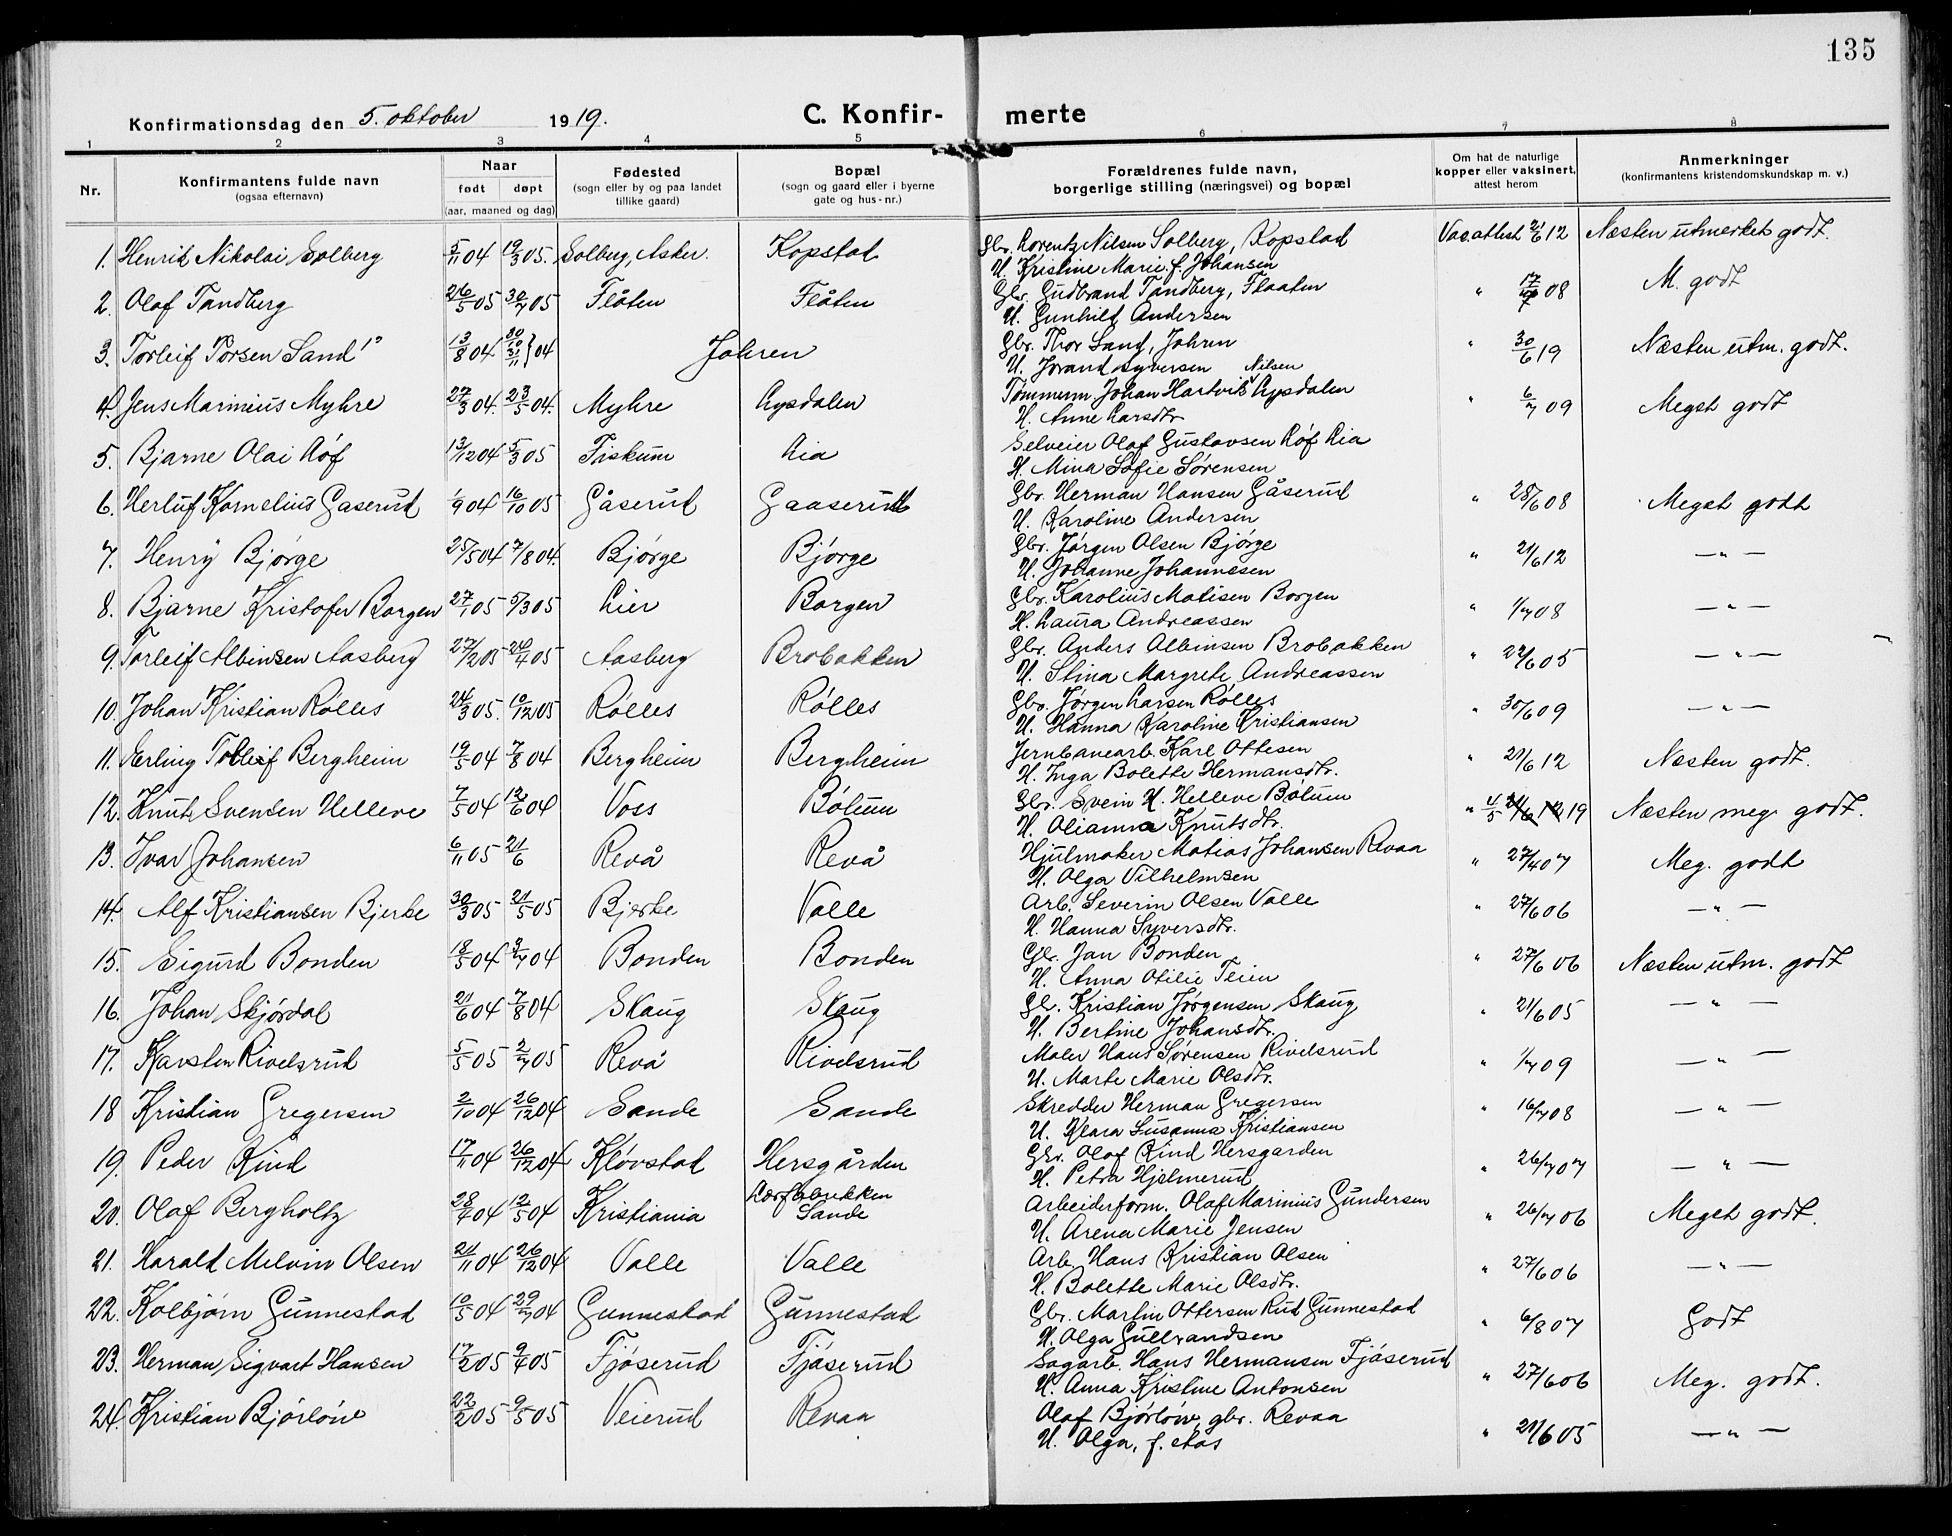 135
Konfirmationsdag den 5. oktober 1919.
C. Konfir- merte
1 2 3 4 5 6 7 8
Nr.
Konfirmantens fulde navn
(ogsaa efternavn)
Naar
født døpt
(aar, maaned og dag)
Fødested
(sogn eller by og paa landet
tillike gaard)
Bopæl
(sogn og gaard eller i byerne
gate og hus-nr.)
Forældrenes fulde navn,
borgerlige stilling (næringsvei) og bopæl
Om hat de naturlige
kopper eller vaksinert,
attest herom
Anmerkninger
(konfirmantens kristendomskundskap m. v.)
1. Henrik Nikolai Solberg 5/11 04 19/3 05. Solberg, Asker. Kopstad Gbr. Lorentz Nilsen Solberg, Kopstad Vac.attest 21/6 12 Næsten utmerket godt.
H. Kristine Marie f. Johansen
2. Olaf Tandberg 26/5 05 30/7 05 Flåten Flåten Gbr. Gudbrand Tandberg, Flaaten " 17/7 08 M. godt
H. Gunhild Andersen
3. Torleif Torsen Sand 13/8 04 30/10 31/11 } 04 Johren Gbr. Thor Sand, Johren " 30/6 19 Næsten utm. godt.
H. Jorand Syversen
4. Jens Marinius Myhre 27/3 04. 23/5 04. Myhre Aysdalen Tømmerm Johan Hartvik Nilsen Aysdalen " 6/7 09 Meget godt
H. Anne Larsdtr.
5. Bjarne Olai Røf 13/12 04 5/3 05 Fiskum Lia Selveier Olaf Gustavsen Røf Lia
H. Mina Sofie Sørensen
6. Herluf Kornelius Gaserud 1/9 04 16/10 05 Gåserud Gaaserud Gbr. Herman Hansen Gåserud " 28/6 08 Meget godt
H. Karoline Andersen
7. Henry Bjørge 25/5 04 7/8 04. Bjørge Bjørge Gbr. Jørgen Olsen Bjørge " 21/6 12 — " —
H. Johanne Johannesen
8. Bjarne Kristofer Borgen 27/1 05 5/3 05 Lier Borgen Gbr. Karolius Matisen Borgen " 1/7 08 — " —
H. Laura Andreassen
9. Torleif Albinsen Aasberg 27/2 05 24/4 05 Aasberg Brobakken Gbr. Anders Albinsen Brobakken " 22/6 05 — " —
H. Stina Margrete Andreassen
10. Johan Kristian Rølles 24/3 05. 10/12 05 Rølles Rølles Gbr. Jørgen Larsen Rølles " 30/6 09 — " —
H. Hanna Karoline Kristiansen
11. Erling Tolleif Bergheim 19/5 04 7/8 04 Bergheim Bergheim Jernbanearb. Karl Ottesen " 21/6 12 Næsten godt.
H. Inga Bolette Hermansdtr.
12. Knut Svensen Helleve 7/5 04 12/6 04 Voss Bølum Gbr. Svein H. Helleve Bølum " 4/5 21/6 12 19 Næsten meg godt.
H. Olianna Knutsdtr.
13. Ivar Johansen 6/11 05 21/6 Revå Revå Hjulmaker Matias Johansen Revaa " 27/4 07 Meg. godt
H. Olga Vilhelmsen
14. Alf Kristiansen Bjerke 30/3 05 21/5 05 Bjerke Valle Arb. Severin Olsen Valle " 27/6 06 — " —
H. Hanna Syversdtr.
15. Sigurd Bonden 18/5 04 3/7 04 Bonden Bonden Gl. Jan Bonden " 27/6 06 Næsten utm. godt
H. Anna Otilie Teien
16. Johan Skjørdal 21/6 04 7/8 04 Skaug Skaug Gl. Kristian Jørgensen Skaug " 21/6 05 — " —
H. Bertine Johansdtr.
17. Karsten Rivelsrud 5/5 05 2/7 05 Revå Rivelsrud Maler Hans Sørensen Rivelsrud " 1/7 09 — " —
H. Marte Marie Olsdtr.
18 Kristian Gregersen 2/10 04 26/12 04 Sande Sande Skredder Herman Gregersen " 16/7 08 — " —
H. Klara Susanna Kristiansen
19. Peder Kind 17/11 04 26/12 04 Kløvstad Hersgården Gbr. Olaf Kind Hersgarden " 26/7 07 — " —
H. Petra Hjelmerud
20. Olaf Bergholtz 28/4 04 12/5 04 Kristiania Lærfabrikken Sande Arbeiderform. Olaf Marinius Gundersen " 26/7 06 Meget godt.
H. Arena Marie Jensen
21. Harald Melvin Olsen 21/11 04 26/12 04 Valle Valle Arb. Hans Kristian Olsen " 27/6 06 — " —
H. Bolette Marie Olsdtr.
22. Kolbjørn Gunnestad 10/5 04 29/7 04 Gunnestad Gunnestad Gbr. Martin Ottersen Rud Gunnestad " 6/8 07 Godt
H. Olga Gulbrandsen
23. Herman Sigvart Hansen 17/2 05 9/4 05 Fjøserud Fjøserud Sagarb. Hans Hermansen Fjøserud " 27/6 06 Meg. godt.
H. Anna Kristine Antonsen
24. Kristian Bjørløw 22/2 05 9/5 05 Veierud Revaa Olaf Bjørløw, gbr. Revaa " 21/6 05 — " —
H. Olga, f. Aas